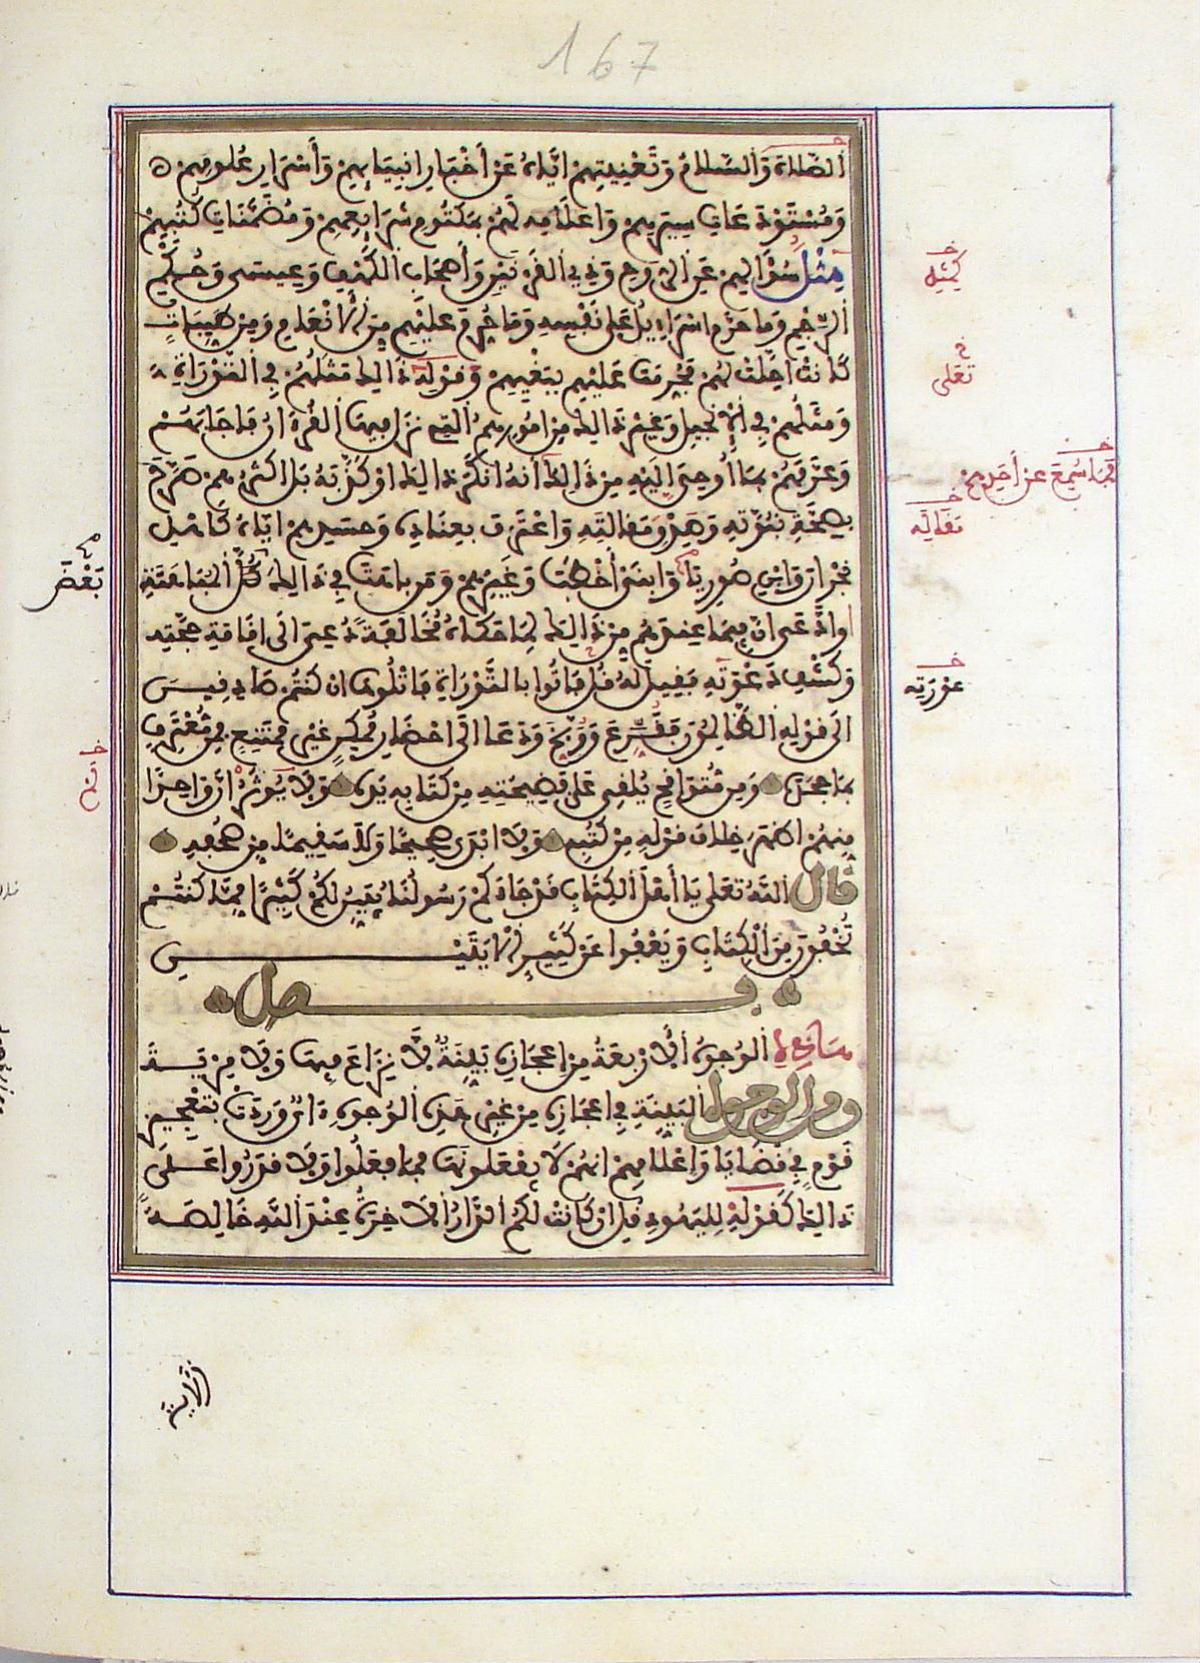 167
الصَّلاة وَالسَّلامُ وَتَعْنِيتِهِمْ إيَّاهُ عَنْ أخْبَارِ انبِيَايِهِمْ وَأَسْرَارِ عُلُومِهِمْ
وَمُسْتَوْدَعَاتِ سِيَرِهِمْ وَاعْلَامِهِ لَهُمْ بِمَكْتُومِ شَرَايِعِهِمْ وَمُضَمَّنَاتِ كُتُبِهِمْ
مِثْلَ سُؤَالِهِمْ عَنِ الرُّوحِ وَذِي الْقَرْنَيْنِ وَأَصْحَابِ الْكَهْفِ وَعِيسَى وَحُكْمِ
الرَّجْمِ وَمَا حَرَّمَ اسْرَاءِيلُ عَلَى نَفْسِهِ وَمَا حُرِّمَ عَلَيْهِمْ مِنَ الْأَنْعَامِ وَمِنْ طَيِّبَاتٍ
كَانَتْ احِلَّتْ لَهُمْ فَحُرِّمَتْ عَلَيْهِمْ بِبَغْيِهِمْ وَقَوْلِهِ ذَالِكَ مَثَلُهُمْ فِي التَّوْرَاةِ
وَمَثَلُهُمْ فِي الْإنْجِيلِ وَغَيْرِ ذَالِكَ مِنْ امُورِهِمُ الَّتِي نَزَلَ فِيهَا الْقُرْءَانُ فَأَجَابَهُمْ
وَعَرَّفَهُمْ بِمَا أُوحِيَ إلَيْهِ مِنْ ذَالِكَ أَنَّهُ انْكَرَ ذَالِكَ اوْ كَذَّبَهُ بَلْ اكْثَرُهُمْ صَرَّحَ
بِصِحَّةِ نُبُوَّتِهِ وَصِدْقِ مَقَالَتِهِ وَاعْتَرَفَ بِعِنَادِهِ وَحَسَدِهِمْ ايَّاهُ كَأَهْلِ
نَجْرَانَ وَابْنِ صُورِيَا وَابْنَيْ أَخْطَبَ وَغَيْرِهِمْ وَمَنْ بَاهَتَ فِي ذَالِكَ كُلَّ الْمُبَاهَتَةِ
وادَّعَى انَّ فِيمَا عِنْدَهُمْ مِنْ ذَالِكَ لِمَا حَكَاهُ مُخَالَفَةً دُعِيَ الَى اقَامَةِ حُجَّتِهِ
وَكَشْفِ دَعْوَتِهِ فَقِيلَ لَهُ قُلْ فَاتُوا بِالتَّوْرَاةِ فَاتْلُوهَا ان كُنتُمْ صَادِقِينَ
الَى قَوْلِهِ الظَّالِمُونَ فَقَرَّعَ وَوَبَّخَ وَدَعَا الَى احْضَارِ مُمْكِنٍ غَيْرِ مُمْتَنِعٍ فَمِنْ مُعْتَرِفٍ
بِمَا جَحَدَهُ وَمِنْ مُتَوَاقِحٍ يُلْقِي عَلَى فَضِيحَتِهِ مِنْ كِتَابِهِ يَدَهُ وَلَا يُوثَرُ انَّ وَاحِدًا
مِنْهُمْ اظْهَرَ خِلَافَ قَوْلِهِ مِنْ كُتُبِهِ وَلَا ابْدَى صَحِيحًا وَلَا سَقِيمًا مِنْ صُحُفِهِ
قال اللَّهُ تَعَلَى يَا أهْلَ الكِتَابِ قَدْ جَاءَكُمْ رَسُولُنَا يُبَيِّنُ لَكُمْ كَثِيرًا مِمَّا كُنتُمْ
تُخْفُونَ مِنَ الْكِتَابِ وَيَعْفُوا عَنْ كَثِيرٍ الْآيَتَيْنِ
فصل
هَاذِهِ الْوُجُوهُ الْأرْبَعَةُ مِنْ اعْجَازِهِ بَيِّنَةٌ لَا نِزَاعَ فِيهَا وَلَا مِرْيَةَ
ومن الوجوه الْبَيِّنَةِ فِي اعْجَازِهِ مِنْ غَيْرِ هَذِهِ الْوُجُوهِ ءَايٌ وَرَدَتْ بِتَعْجِيزِ
قَوْمٍ فِي قَضَايَا وَاعْلَامِهِمْ انَّهُمْ لَا يَفْعَلُونَهَا فَمَا فَعَلُوا وَلَا قَدَرُوا عَلَى
ذَالِكَ كَقَوْلِهِ لِلْيَهُودِ قُلْ إن كَانَتْ لَكُمُ الدَّارُ الْآخِرَةُ عِنْدَ اللَّهِ خَالِصَةً
كَمِثْلِهِ
تَعَلَى
فَمَا سُمِعَ عَنْ أَحَدٍ مِنْهُمْ
مَقَالِهِ
بَعْضَ
عَوْرَتِهِ
الْآيَة